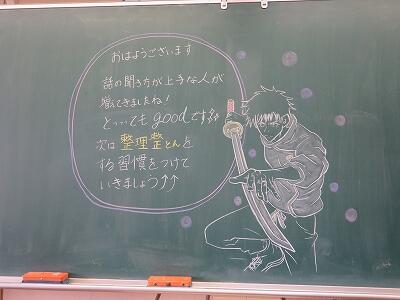 おはようございます
話の聞き方が上手な人が
増えてきましたね！
とってもgoodです
次は整理整とんを
する習慣をつけて
いきましょう↑↑